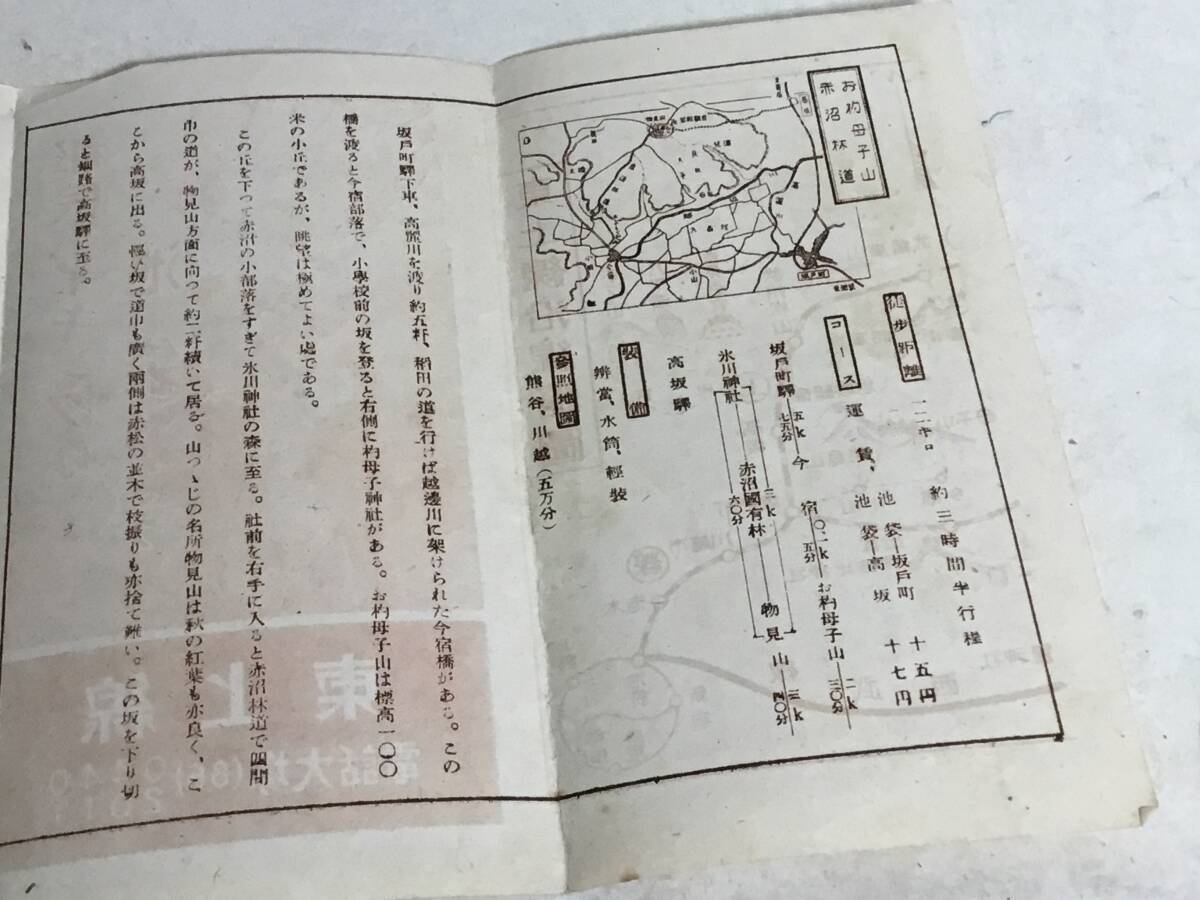 お杓母子山
赤沼林道
徒歩距離 一二キロ 約三時間半行程
コース 運賃、池袋―坂戸町 十五円
池袋―高坂 十七円
坂戸町驛 五k 七五分 今宿 〇.一k 五分 お杓母子山 二k 三〇分
氷川神社 赤沼國有林 三k 六〇分 物見山 三k 四〇分
高坂驛
装備
辨當、水筒、輕装
参照地圖
熊谷、川越(五万分)
坂戸町驛下車、高麗川を渡り約五粁、稻田の道を行けば越邊川に架けられた今宿橋がある。この
橋を渡ると今宿部落で、小學校前の坂を登ると右側に杓母子神社がある。お杓母子山は標高一〇〇
米の小丘であるが、眺望は極めてよい處である。
この丘を下つて赤沼の小部落をすぎて氷川神社の森に至る。社前を右手に入ると赤沼林道で四間
巾の道が、物見山方面に向つて約二粁續いて居る。山つゝじの名所物見山は秋の紅葉も亦良く、こ
こから高坂に出る。輕い坂で道巾も廣く兩側は赤松の並木で枝振りも亦捨て難い。この坂を下り切
ると畑路で高坂驛に至る。
坂戸町
東上線